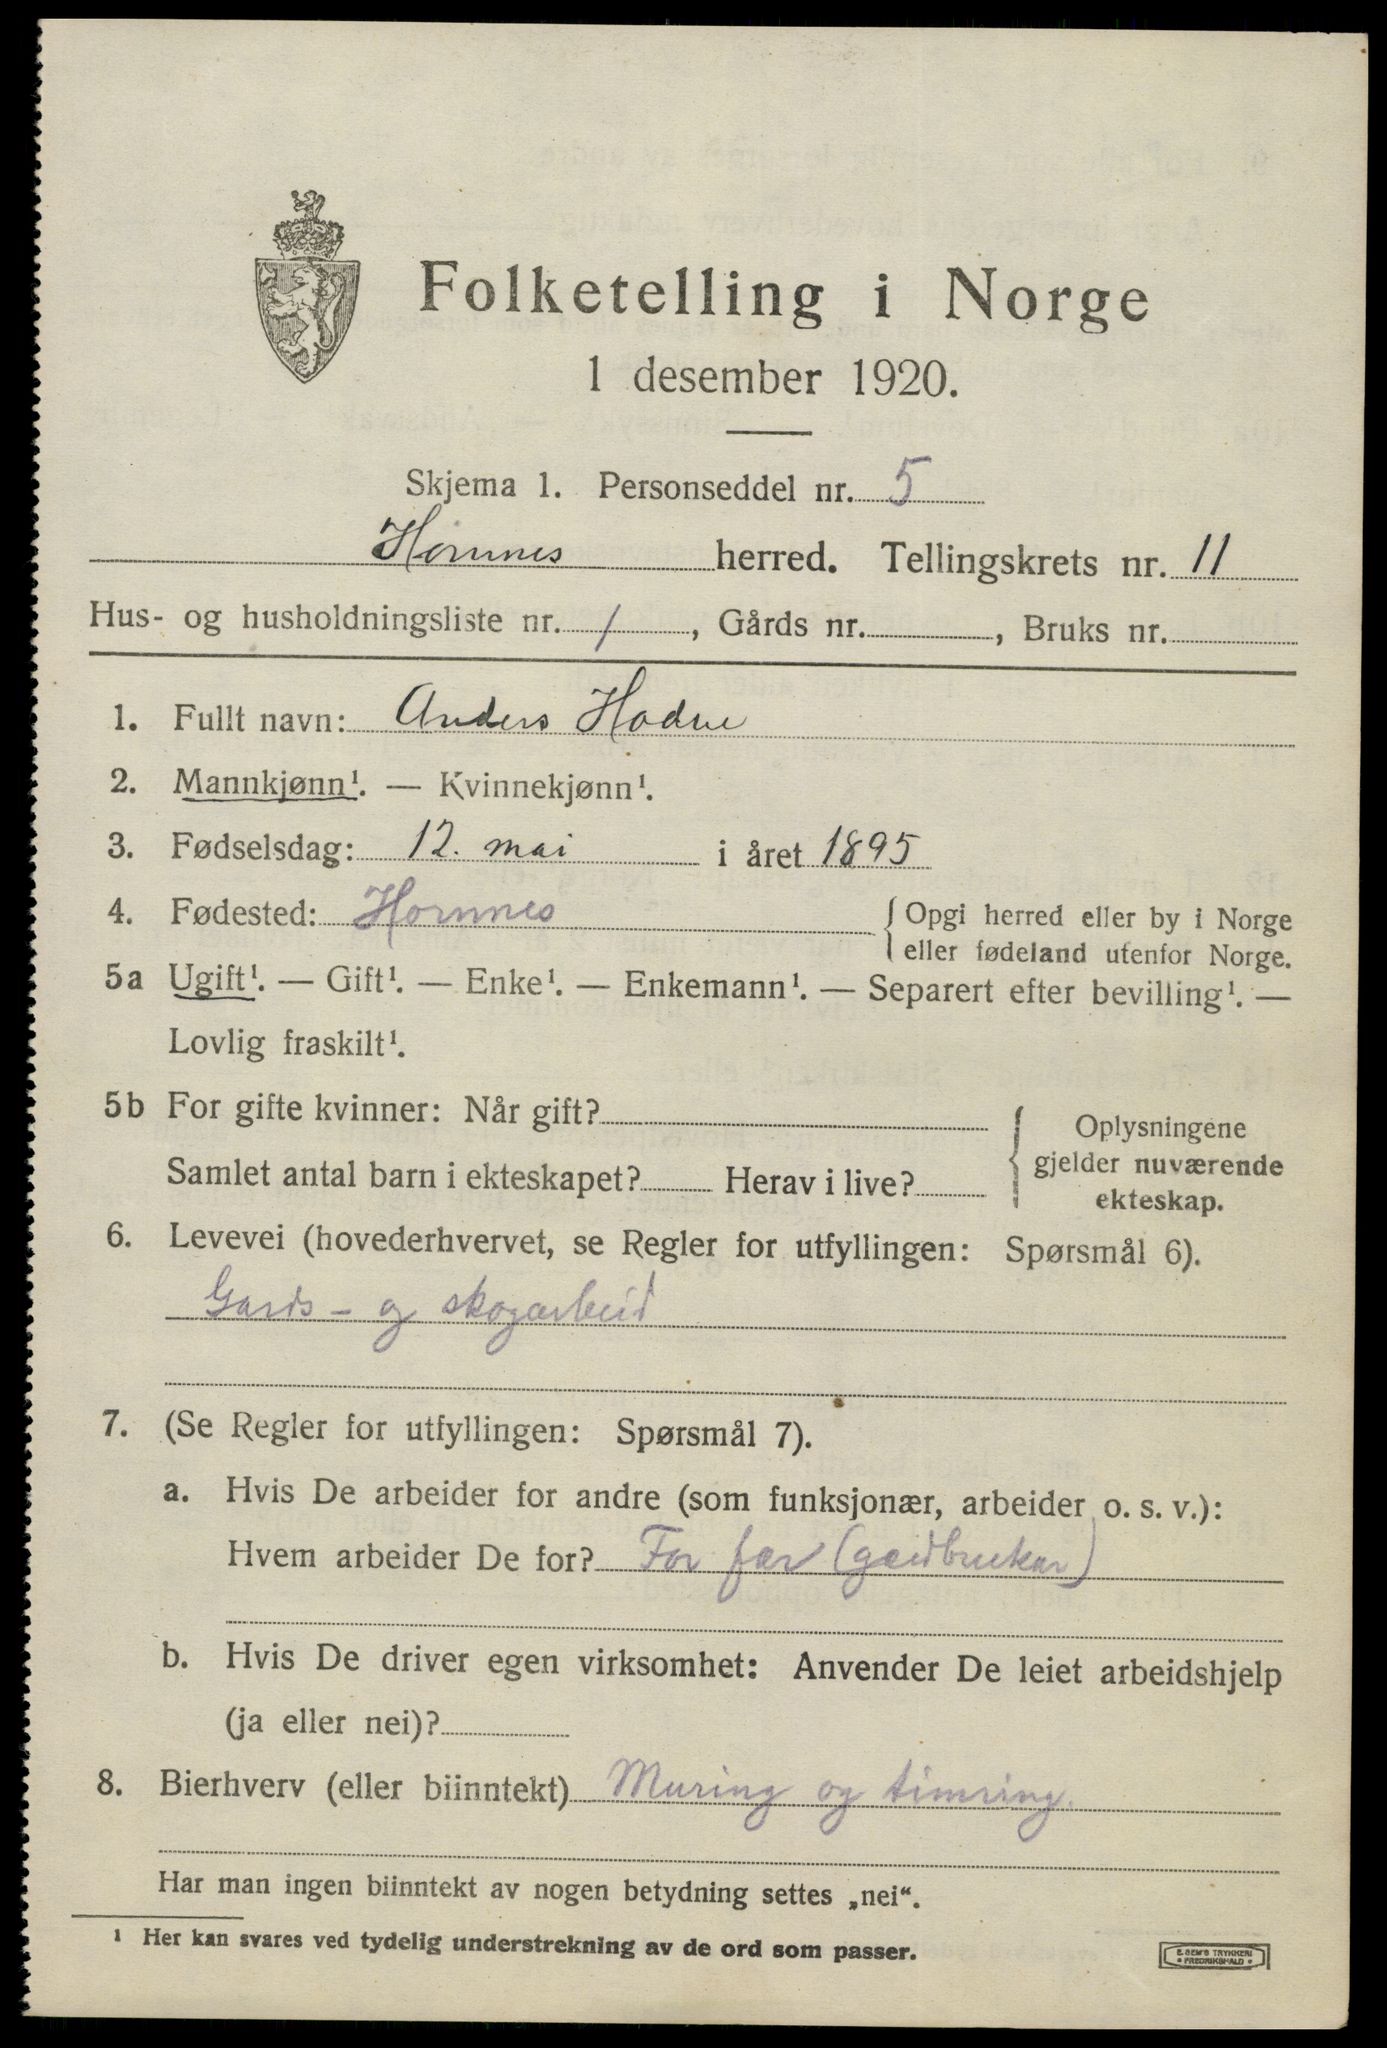 Folketelling i Norge
1 desember 1920.
Skjema 1. Personseddel nr. 5
Hornnes herred. Tellingskrets nr. 11
Hus- og husholdningsliste nr. 1, Gårds nr. , Bruks nr.
1. Fullt navn: Anders Hodne
2. Mannkjønn¹. — Kvinnekjønn¹.
3. Fødselsdag: 12. mai i året 1895
4. Fødested: Hornnes { Opgi herred eller by i Norge
eller fødeland utenfor Norge.
5a Ugift¹. — Gift¹. — Enke¹. — Enkemann¹. — Separert efter bevilling¹. —
Lovlig fraskilt¹.
5b For gifte kvinner: Når gift?
Samlet antal barn i ekteskapet? Herav i live?
{ Oplysningene
gjelder nuværende
ekteskap.
6. Levevei (hovederhvervet, se Regler for utfyllingen: Spørsmål 6).
Gards- og skogarbeid
7. (Se Regler for utfyllingen: Spørsmål 7).
a. Hvis De arbeider for andre (som funksjonær, arbeider o. s. v.):
Hvem arbeider De for? For far (gardbrukar)
b. Hvis De driver egen virksomhet: Anvender De leiet arbeidshjelp
(ja eller nei)?
8. Bierhverv (eller biinntekt) Muring og timring.
Har man ingen biinntekt av nogen betydning settes „nei“.
¹ Her kan svares ved tydelig understrekning av de ord som passer.
E. SEM'S TRYKKERI
* FREDRIKSHALD *